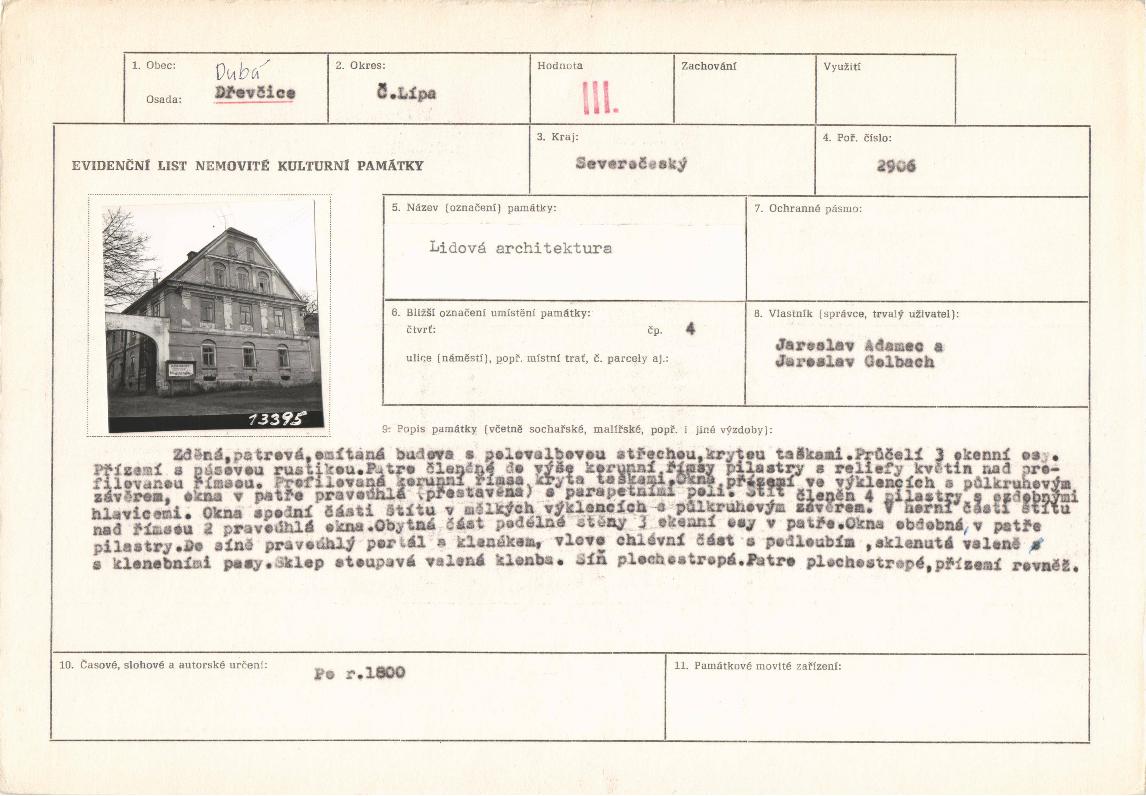 1. Obec: Dubá
Osada: Dřevčice
2. Okres:
Č.Lípa
Hodnota
III.
Zachování
Využití
EVIDENČNÍ LIST NEMOVITÉ KULTURNÍ PAMÁTKY
3. Kraj:
Severočeský
4. Poř. číslo:
2906
5. Název (označení) památky:
Lidová architektura
7. Ochranné pásmo:
6. Bližší označení umístění památky:
čtvrť: čp. 4
ulice (náměstí), popř. místní trať, č. parcely aj.:
8. Vlastník (správce, trvalý uživatel):
Jaroslav Adamec a
Jaroslav Gelbach
13395
9. Popis památky (včetně sochařské, malířské, popř. i jiné výzdoby):
Zděná,patrová,omítaná budova s polovalbovou střechou,krytou taškami.Průčelí 3 okenní osy.
Přízemí s pásovou rustikou.Patro členěné do výše korunní římsy pilastry s reliefy květin nad pro-
filovanou římsou. Profilovaná korunní římsa kryta taškami.Okna přízemí ve výklencích s půlkruhovým
závěrem, okna v patře pravoúhlá (přestavěna) s parapetními poli. Štít členěn 4 pilastry s ozdobnými
hlavicemi. Okna spodní části štítu v mělkých výklencích s půlkruhovým závěrem. V horní části štítu
nad římsou 2 pravoúhlá okna.Obytná část podélné stěny 3 okenní osy v patře.Okna obdobná, v patře
pilastry.Do síně pravoúhlý portál s klenákem, vlevo chlévní část s podloubím ,sklenutá valeně s
s klenebními pasy.Sklep stoupavá valená klenba. Síň plochostropá.Patro plochostropé,přízemí rovněž.
10. Časové, slohové a autorské určení:
Po r.1800
11. Památkové movité zařízení: